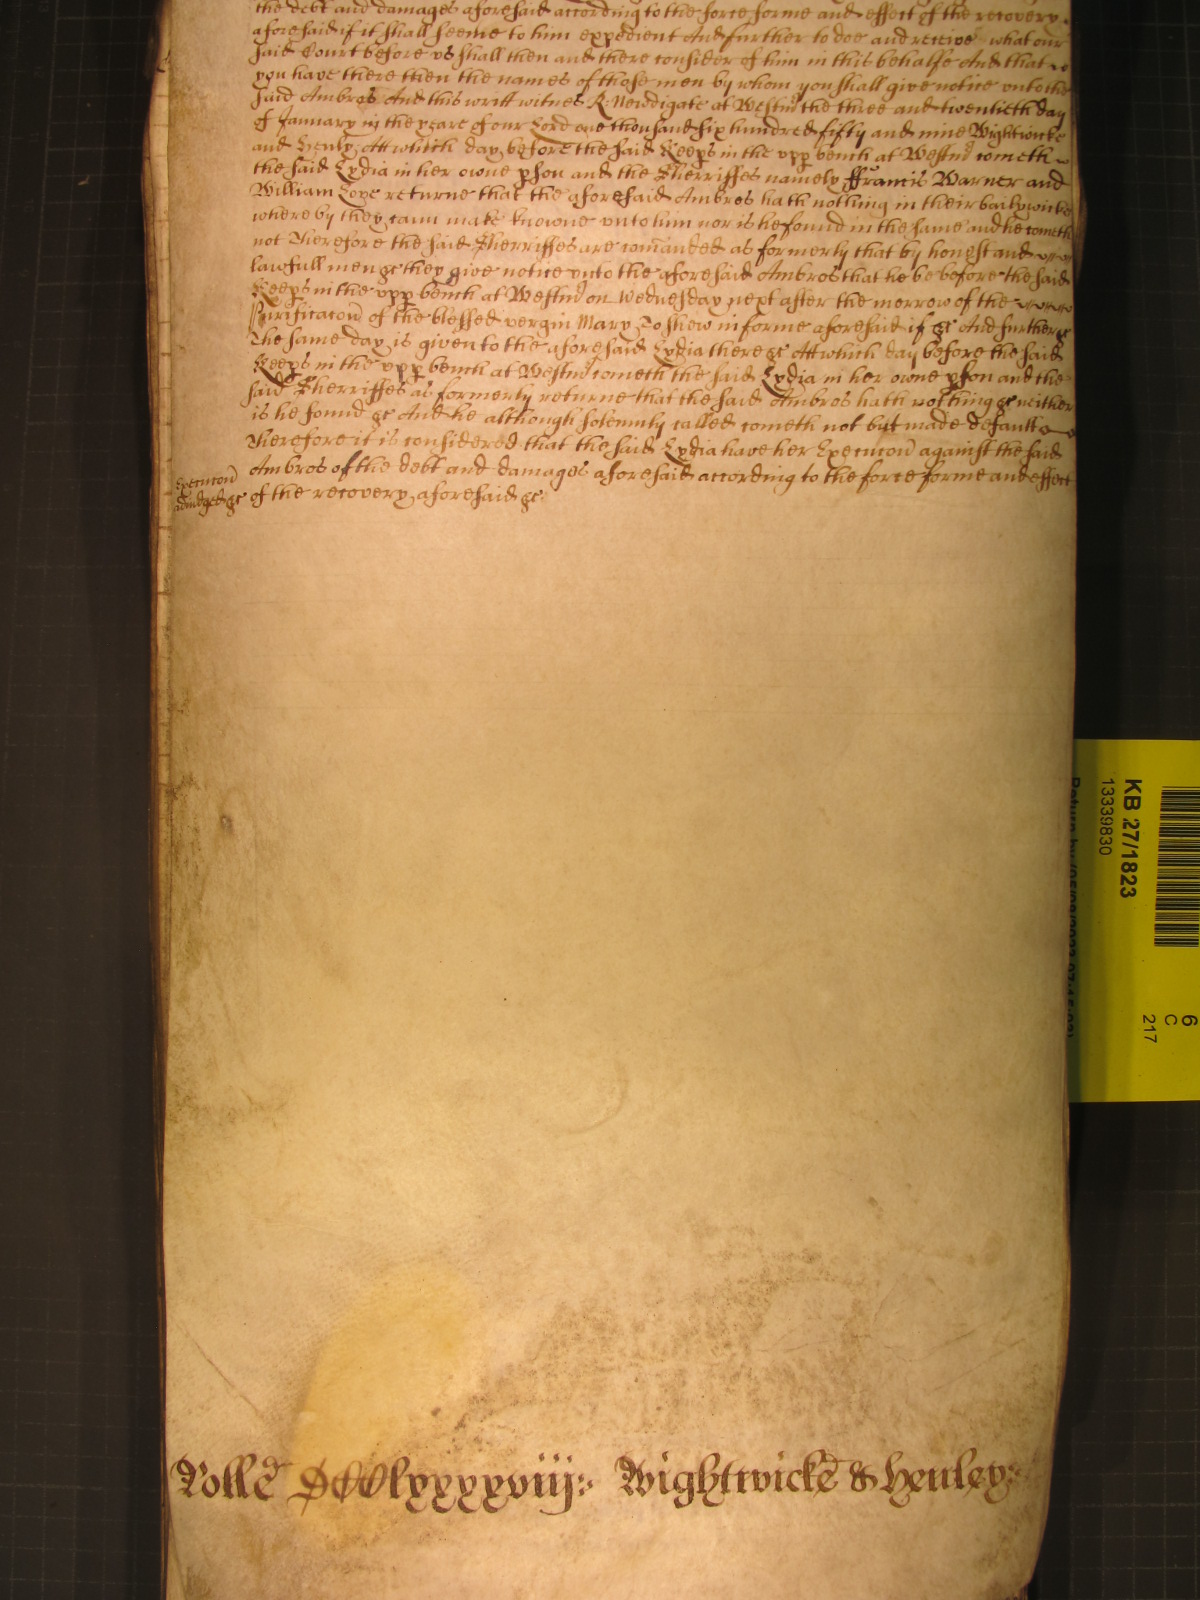 the debt and damages aforesaid according to the force forme and effect of the recovery
aforesaid if it shall seeme to him expedient And further to doe and receive what our
said Court before us shall then and there consider of him in this behalfe And that
you have there then the names of those men by whom you shall give notice unto the
said Ambros And this writt witnes R. Newdigate at Westm̄ the three and twentieth day
of January in the yeare of our Lord one thousand six hundred fifty and nine Wightwicke
and Henly Att which day before the said Keeps in the upp bench at Westm̄ cometh
the said Lydia in her owne pson and the Sherriffes namely ffrancis Warner and
William Love returne that the aforesaid Ambros hath nothing in their bailywicke
whereby they cann make knowne unto him nor is he found in the same and he cometh
not Therefore the said Sherriffes are com̄anded as formerly that by honest and
lawfull men &c they give notice unto the aforesaid Ambros that he be before the said
Keeps in the upp bench at Westm̄ on Wednesday next after the morrow of the
Purificacōn of the blessed vergin Mary To shew in forme aforesaid if &c And further &c
The same day is given to the aforesaid Lydia there &c Att which day before the said
Keeps in the upp bench at Westm̄ cometh the said Lydia in her owne pson and the
said Sherriffes as formerly returne that the said Ambros hath nothing &c neither
is he found &c And he although solemnly called cometh not but made default
Therefore it is considered that the said Lydia have her Execucōn against the said
Ambros of the debt and damages aforesaid according to the force forme and effect
of the recovery aforesaid &c
Execucōn
adiudged &c
Rolle DCClxxxxviij: Wightwicke & Henley:
KB 27/1823
13339830
6
C
217